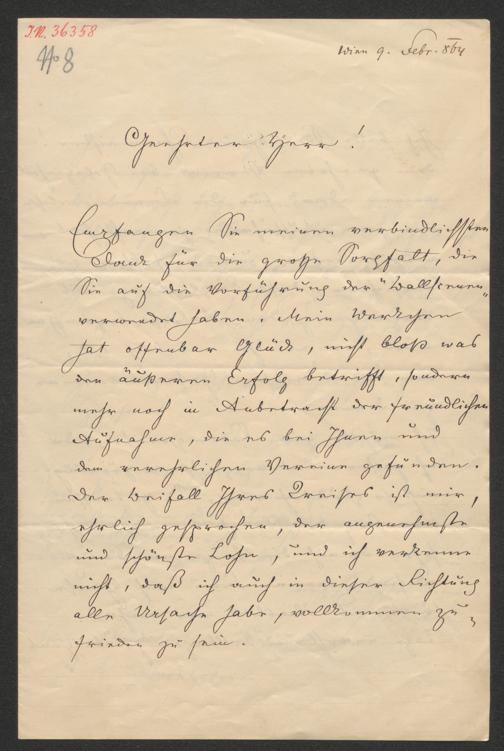 I.N. 36358
No 8
Wien 9. Febr. 864
Geehrter Herr!
Empfangen Sie meinen verbindlichsten
Dank für die große Sorgfalt, die
Sie auf die Vorführung der "Ballscenen"
verwendet haben. Mein Werkchen
hat offenbar Glück, nicht bloß was
den äußeren Erfolg betrifft, sondern
mehr noch in Anbetracht der freundlichen
Aufnahme, die es bei Ihnen und
dem verehrlichen Vereine gefunden.
Der Beifall Ihres Kreises ist mir,
ehrlich gesprochen, der angenehmste
und schönste Lohn, und ich verkenne
nicht, daß ich auch in dieser Richtung
alle Ursache habe, vollkommen zu-
frieden zu sein.